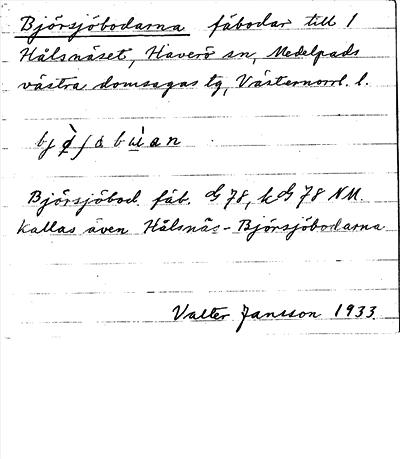 Björsjöbodarna fäbodar till 1
Hålsnäset, Haverö sn, Medelpads
västra domsagas tg, Västernorrl. l.
Björsjöbod. fäb. G 78, k G 78 NM.
Kallas även Hålsnäs-Björsjöbodarna
Valter Jansson 1933.